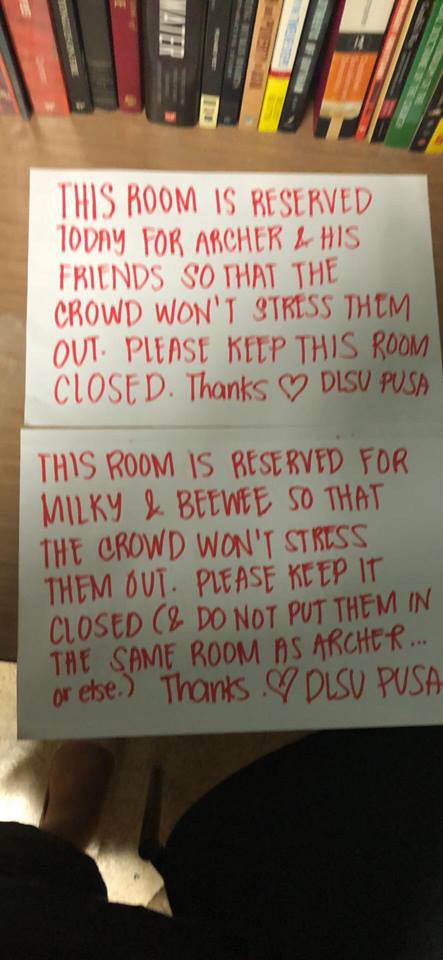 THIS ROOM IS RESERVED
TODAY FOR ARCHER & HIS
FRIENDS SO THAT THE
CROWD WON'T STRESS THEM
OUT. PLEASE KEEP THIS ROOM
CLOSED. Thanks ♡ DLSU PUSA
THIS ROOM IS RESERVED FOR
MILKY & BEEWEE SO THAT
THE CROWD WON'T STRESS
THEM OUT. PLEASE KEEP IT
CLOSED (& DO NOT PUT THEM IN
THE SAME ROOM AS ARCHER...
or else.) Thanks. ♡ DLSU PUSA